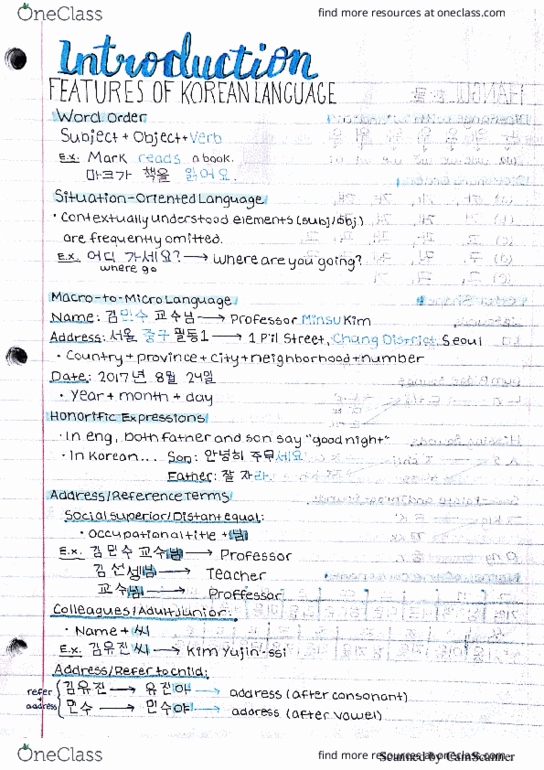 OneClass
find more resources at oneclass.com
Introduction
FEATURES OF KOREAN LANGUAGE
Word order
Subject + Object + Verb
Ex. Mark reads a book.
마크가 책을 읽어요.
Situation-Oriented Language
• Contextually understood elements (subj/obj)
are frequently omitted.
Ex. 어디 가세요? → Where are you going?
where go
Macro-to-Micro Language
Name: 김민수 교수님 → Professor Minsu Kim
Address: 서울 중구 필동1 → 1 Pil Street, Chang District, Seoul
• Country + province + city + neighborhood + number
Date: 2017년 8월 24일
• Year + month + day
Honorific Expressions
• In eng, both father and son say "good night"
• In Korean... Son: 안녕히 주무세요
Father: 잘 자라.
Address/Reference Terms
Social superior/Distant equal:
• Occupational title + 님
Ex. 김민수 교수님 → Professor
김 선생님 → Teacher
교수님 → Proffessor
Colleagues/Adult junior:
• Name + 씨
Ex. 김유진 씨 → Kim Yujin-ssi
Address/Refer to child:
refer + address
김유진 → 유진아 → address (after consonant)
민수 → 민수야 → address (after vowel)
OneClass
find more resources at oneclass.com
Scanned by CamScanner